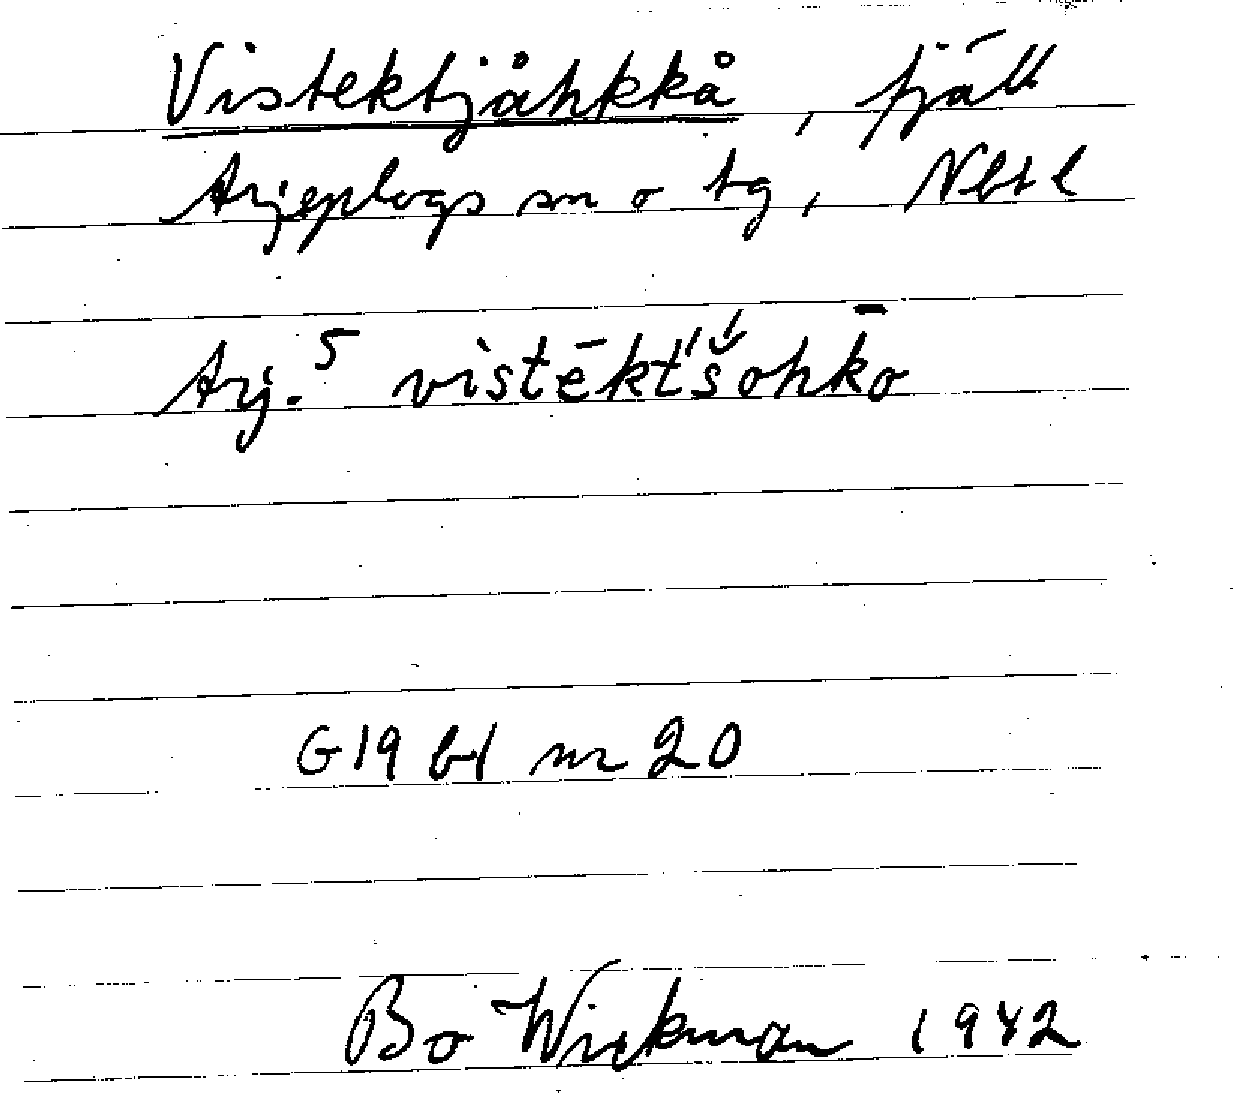 Vistektjåhkkå, fjäll
Arjeplogs sn o tg, Nbt l
Arj.5 vistēkt́š́ohk̄o
G19 bl nr 20
Bo Wickman 1942